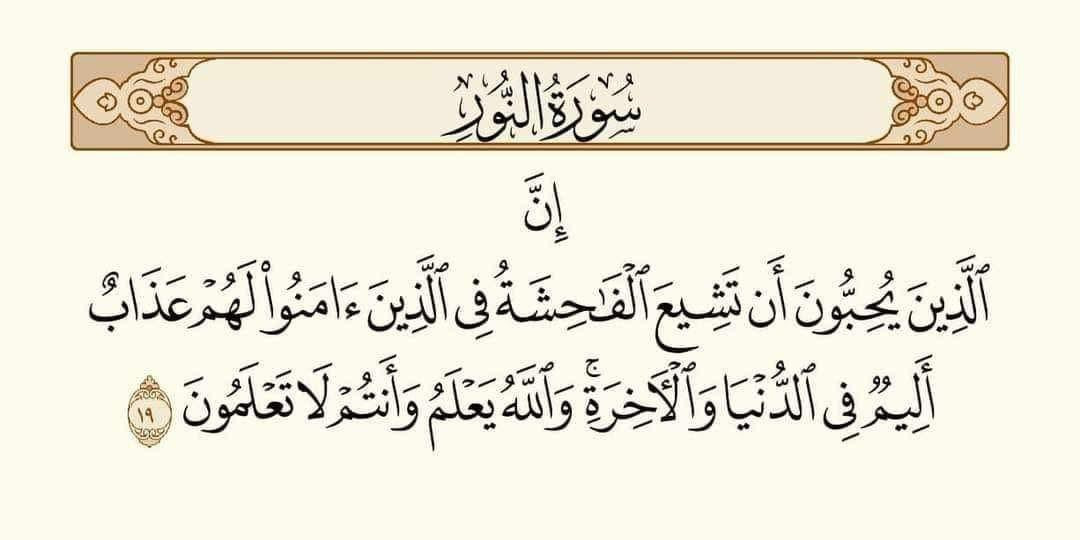 سُورَةُ النُّورِ
إِنَّ
ٱلَّذِينَ يُحِبُّونَ أَن تَشِيعَ ٱلۡفَٰحِشَةُ فِي ٱلَّذِينَ ءَامَنُواْ لَهُمۡ عَذَابٌ
أَلِيمٞ فِي ٱلدُّنۡيَا وَٱلۡأٓخِرَةِۚ وَٱللَّهُ يَعۡلَمُ وَأَنتُمۡ لَا تَعۡلَمُونَ ١٩